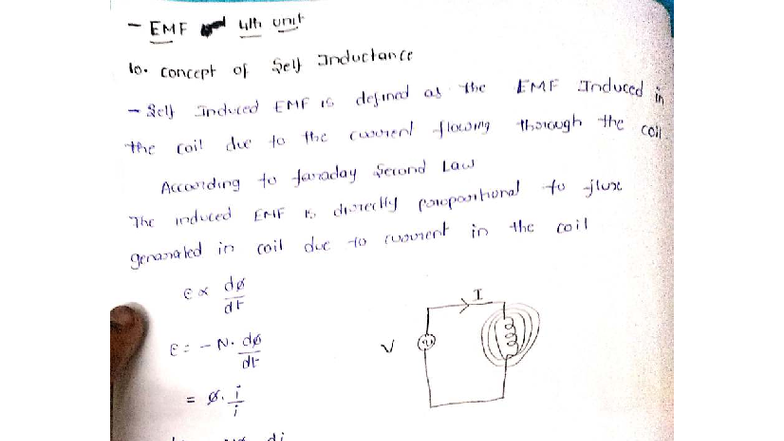 - EMF 4th unit
10. Concept of Self Inductance
- Self Induced EMF is defined as the EMF Induced in
the coil due to the current flowing through the coil
According to faraday Second Law
The induced EMF is directly proportional to flux
generated in coil due to current in the coil
e ∝ dø/dt
e = - N. dø/dt
= ø. i/i
I
V
di